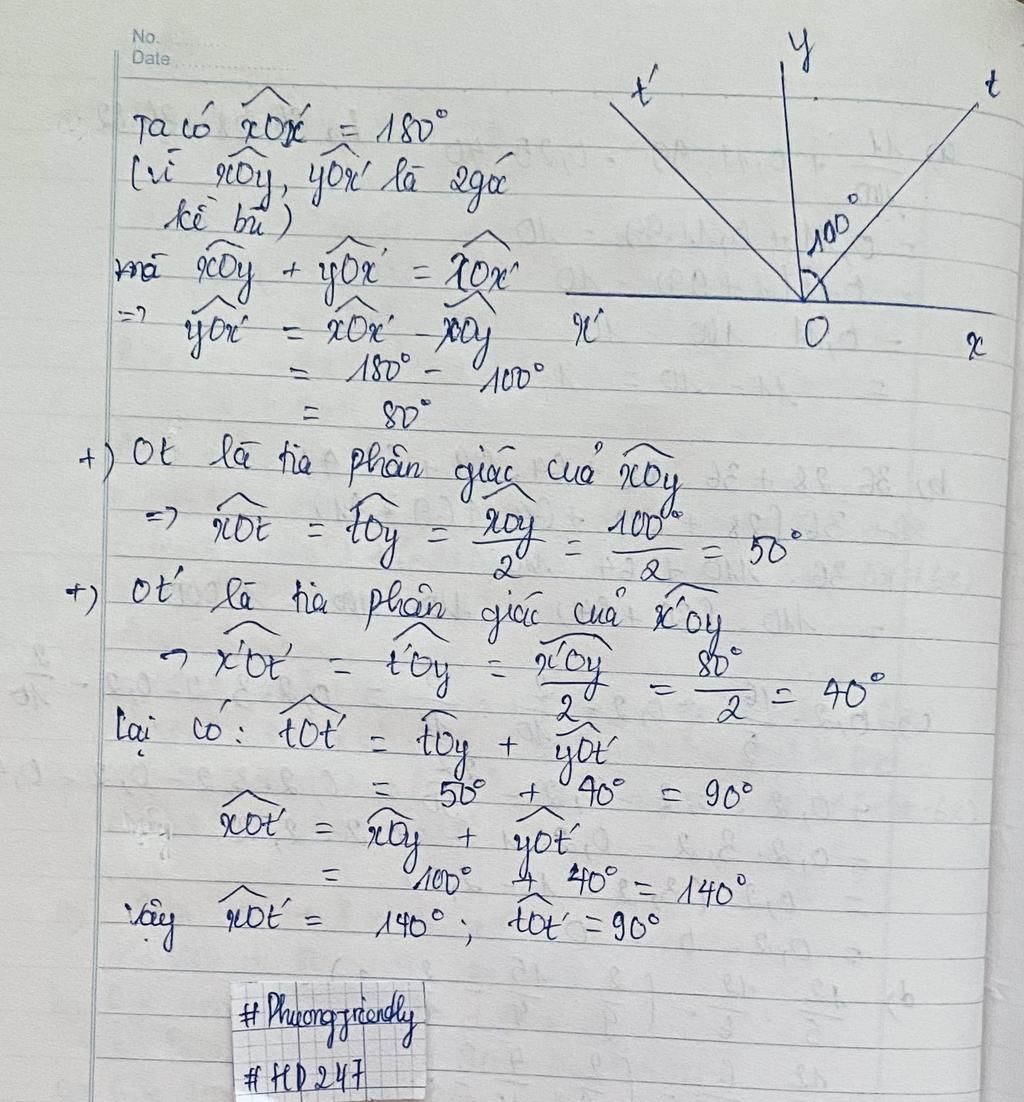 No.
Date
t'
y
t
100°
x'
O
x
Ta có xOx' = 180°
(vì xOy, yOx' là 2 góc
kề bù)
mà xOy + yOx' = xOx'
=> yOx' = xOx' - xOy
= 180° - 100°
= 80°
+) Ot là tia phân giác của xOy
=> xOt = tOy = xOy/2 = 100°/2 = 50°
+) Ot' là tia phân giác của x'Oy
=> x'Ot' = t'Oy = x'Oy/2 = 80°/2 = 40°
Lại có: tOt' = tOy + yOt'
= 50° + 40° = 90°
xOt' = xOy + yOt'
= 100° + 40° = 140°
Vậy xOt' = 140°; tOt' = 90°
#Phuongfriendly
#HD247